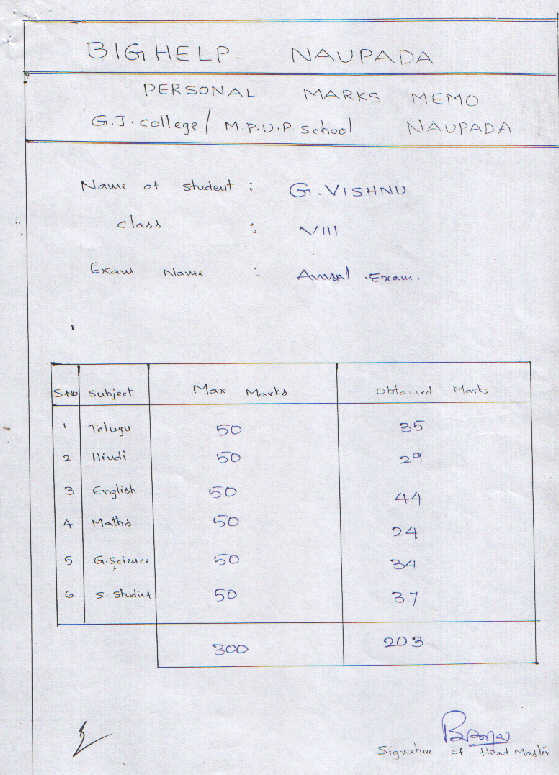 BIG HELP NAUPADA
PERSONAL MARKS MEMO
G.J. college / M.P.U.P School NAUPADA
Name of student : G. VISHNU
class : VIII
Exam Name : Exam.
S.No Subject Max Marks Obtained Marks
1 Telugu 50 35
2 Hindi 50 29
3 English 50 44
4 Maths 50 24
5 G. Science 50 34
6 S. 50 37
300 203
Signature of Head Master